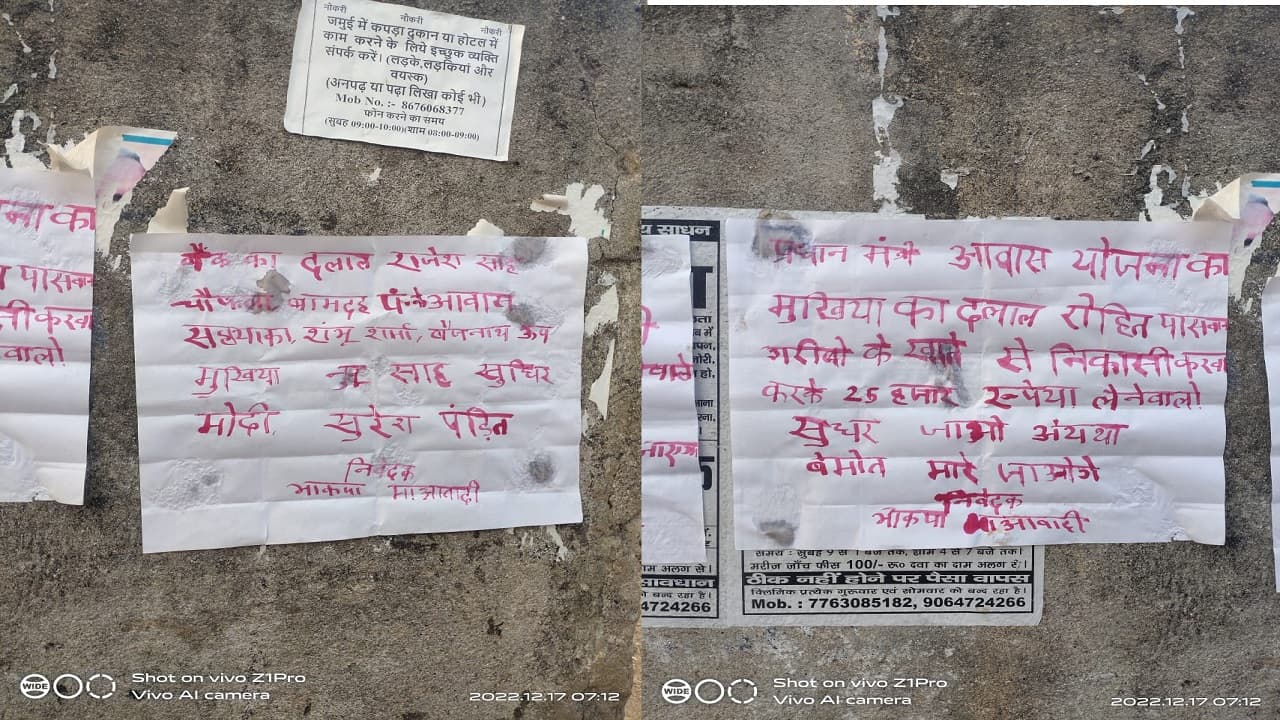 नौकरी नौकरी नौकरी
जमुई में कपड़ा दुकान या होटल में
काम करने के लिये इच्छुक व्यक्ति
संपर्क करें। (लड़के,लड़कियां और
वयस्क)
(अनपढ़ या पढ़ा लिखा कोई भी)
Mob No. :- 8676068377
फोन करने का समय
(सुबह 09:00-10:00)(शाम 08:00-09:00)
नाका
पासवान
वालो
बैंक का दलाल राजेश साह
चौकीदार
मुखिया साह सुधिर
मोदी, सुरेश पंडित
निवेदक
भाकपा माओवादी
WIDE
Shot on vivo Z1Pro
Vivo AI camera
2022.12.17 07:12
साधन
प्रधान मंत्री आवास योजना का
मुखिया का दलाल रोहित पासवान
गरीबो के खाते से निकासी करवा
करके 25 हजार रूपेया लेनेवालो
सुधर जाओ अंयथा
बेमोत मारे जाओगे
निवेदक
भाकपा माओवादी
समय : सुबह 9 से 1 बजे तक, शाम 4 से 7 बजे तक।
मरीज जाँच फीस 100/- रू० दवा का दाम अलग दें।
ठीक नहीं होने पर पैसा वापस
क्लिनिक प्रत्येक गुरूवार एवं सोमवार को बन्द रहा है।
Mob. : 7763085182, 9064724266
ाम अलग से।
सावधान
को बन्द रहा है।
4724266
WIDE
Shot on vivo Z1Pro
Vivo AI camera
2022.12.17 07:12